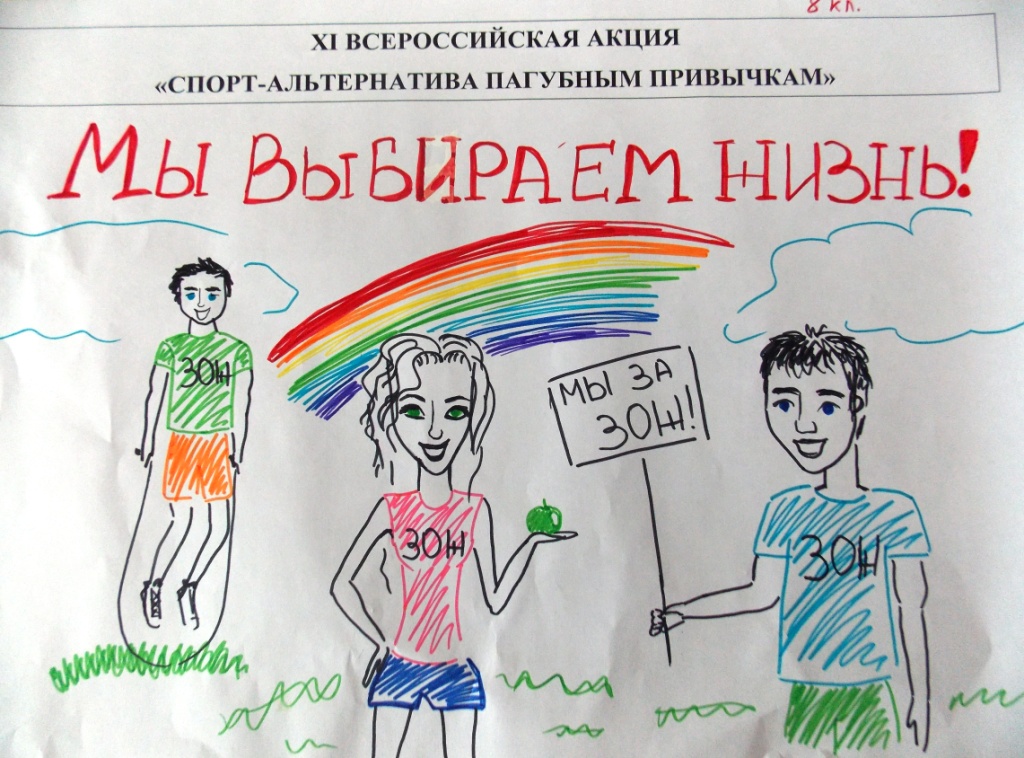 8 кл.
XI ВСЕРОССИЙСКАЯ АКЦИЯ
«СПОРТ-АЛЬТЕРНАТИВА ПАГУБНЫМ ПРИВЫЧКАМ»
МЫ ВЫБИРАЕМ ЖИЗНЬ!
ЗОЖ
МЫ ЗА
ЗОЖ!
ЗОЖ
ЗОЖ